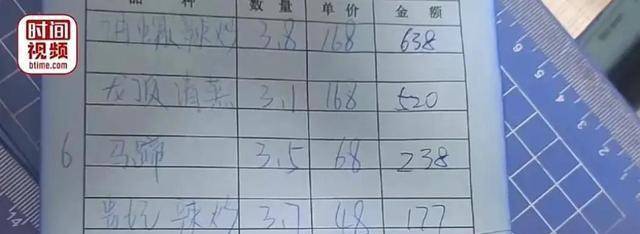 时间
视频
btime.com
品 种 数 量 单 价 金 额
辣炒 3.8 168 638
龙虾 清蒸 3.1 168 520
6 马蹄 3.5 68 238
辣炒 3.7 48 177